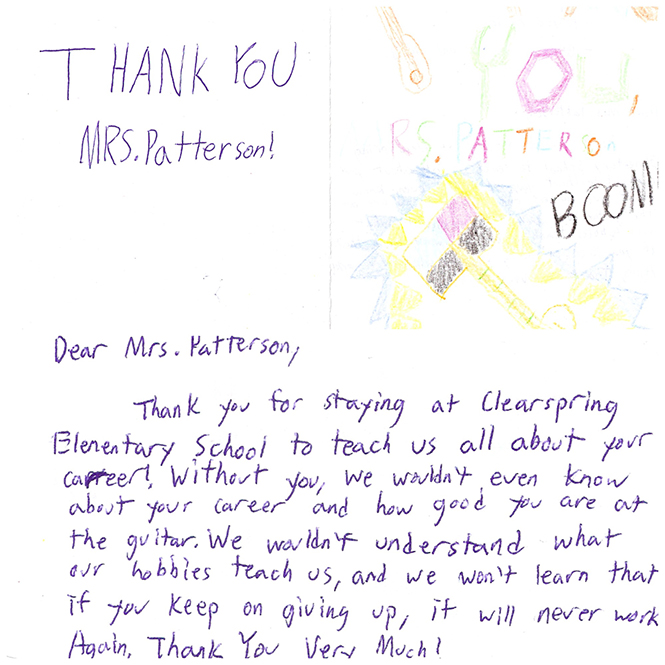 THANK YOU
MRS. Patterson!
YOU,
RS. PATTERSON
BOOM!
Dear Mrs. Patterson,
Thank you for staying at Clearspring
Elementary School to teach us all about your
career! Without you, we wouldn't even know
about your career and how good you are at
the guitar. We wouldn't understand what
our hobbies teach us, and we won't learn that
if you keep on giving up, it will never work
Again, Thank You Very Much!